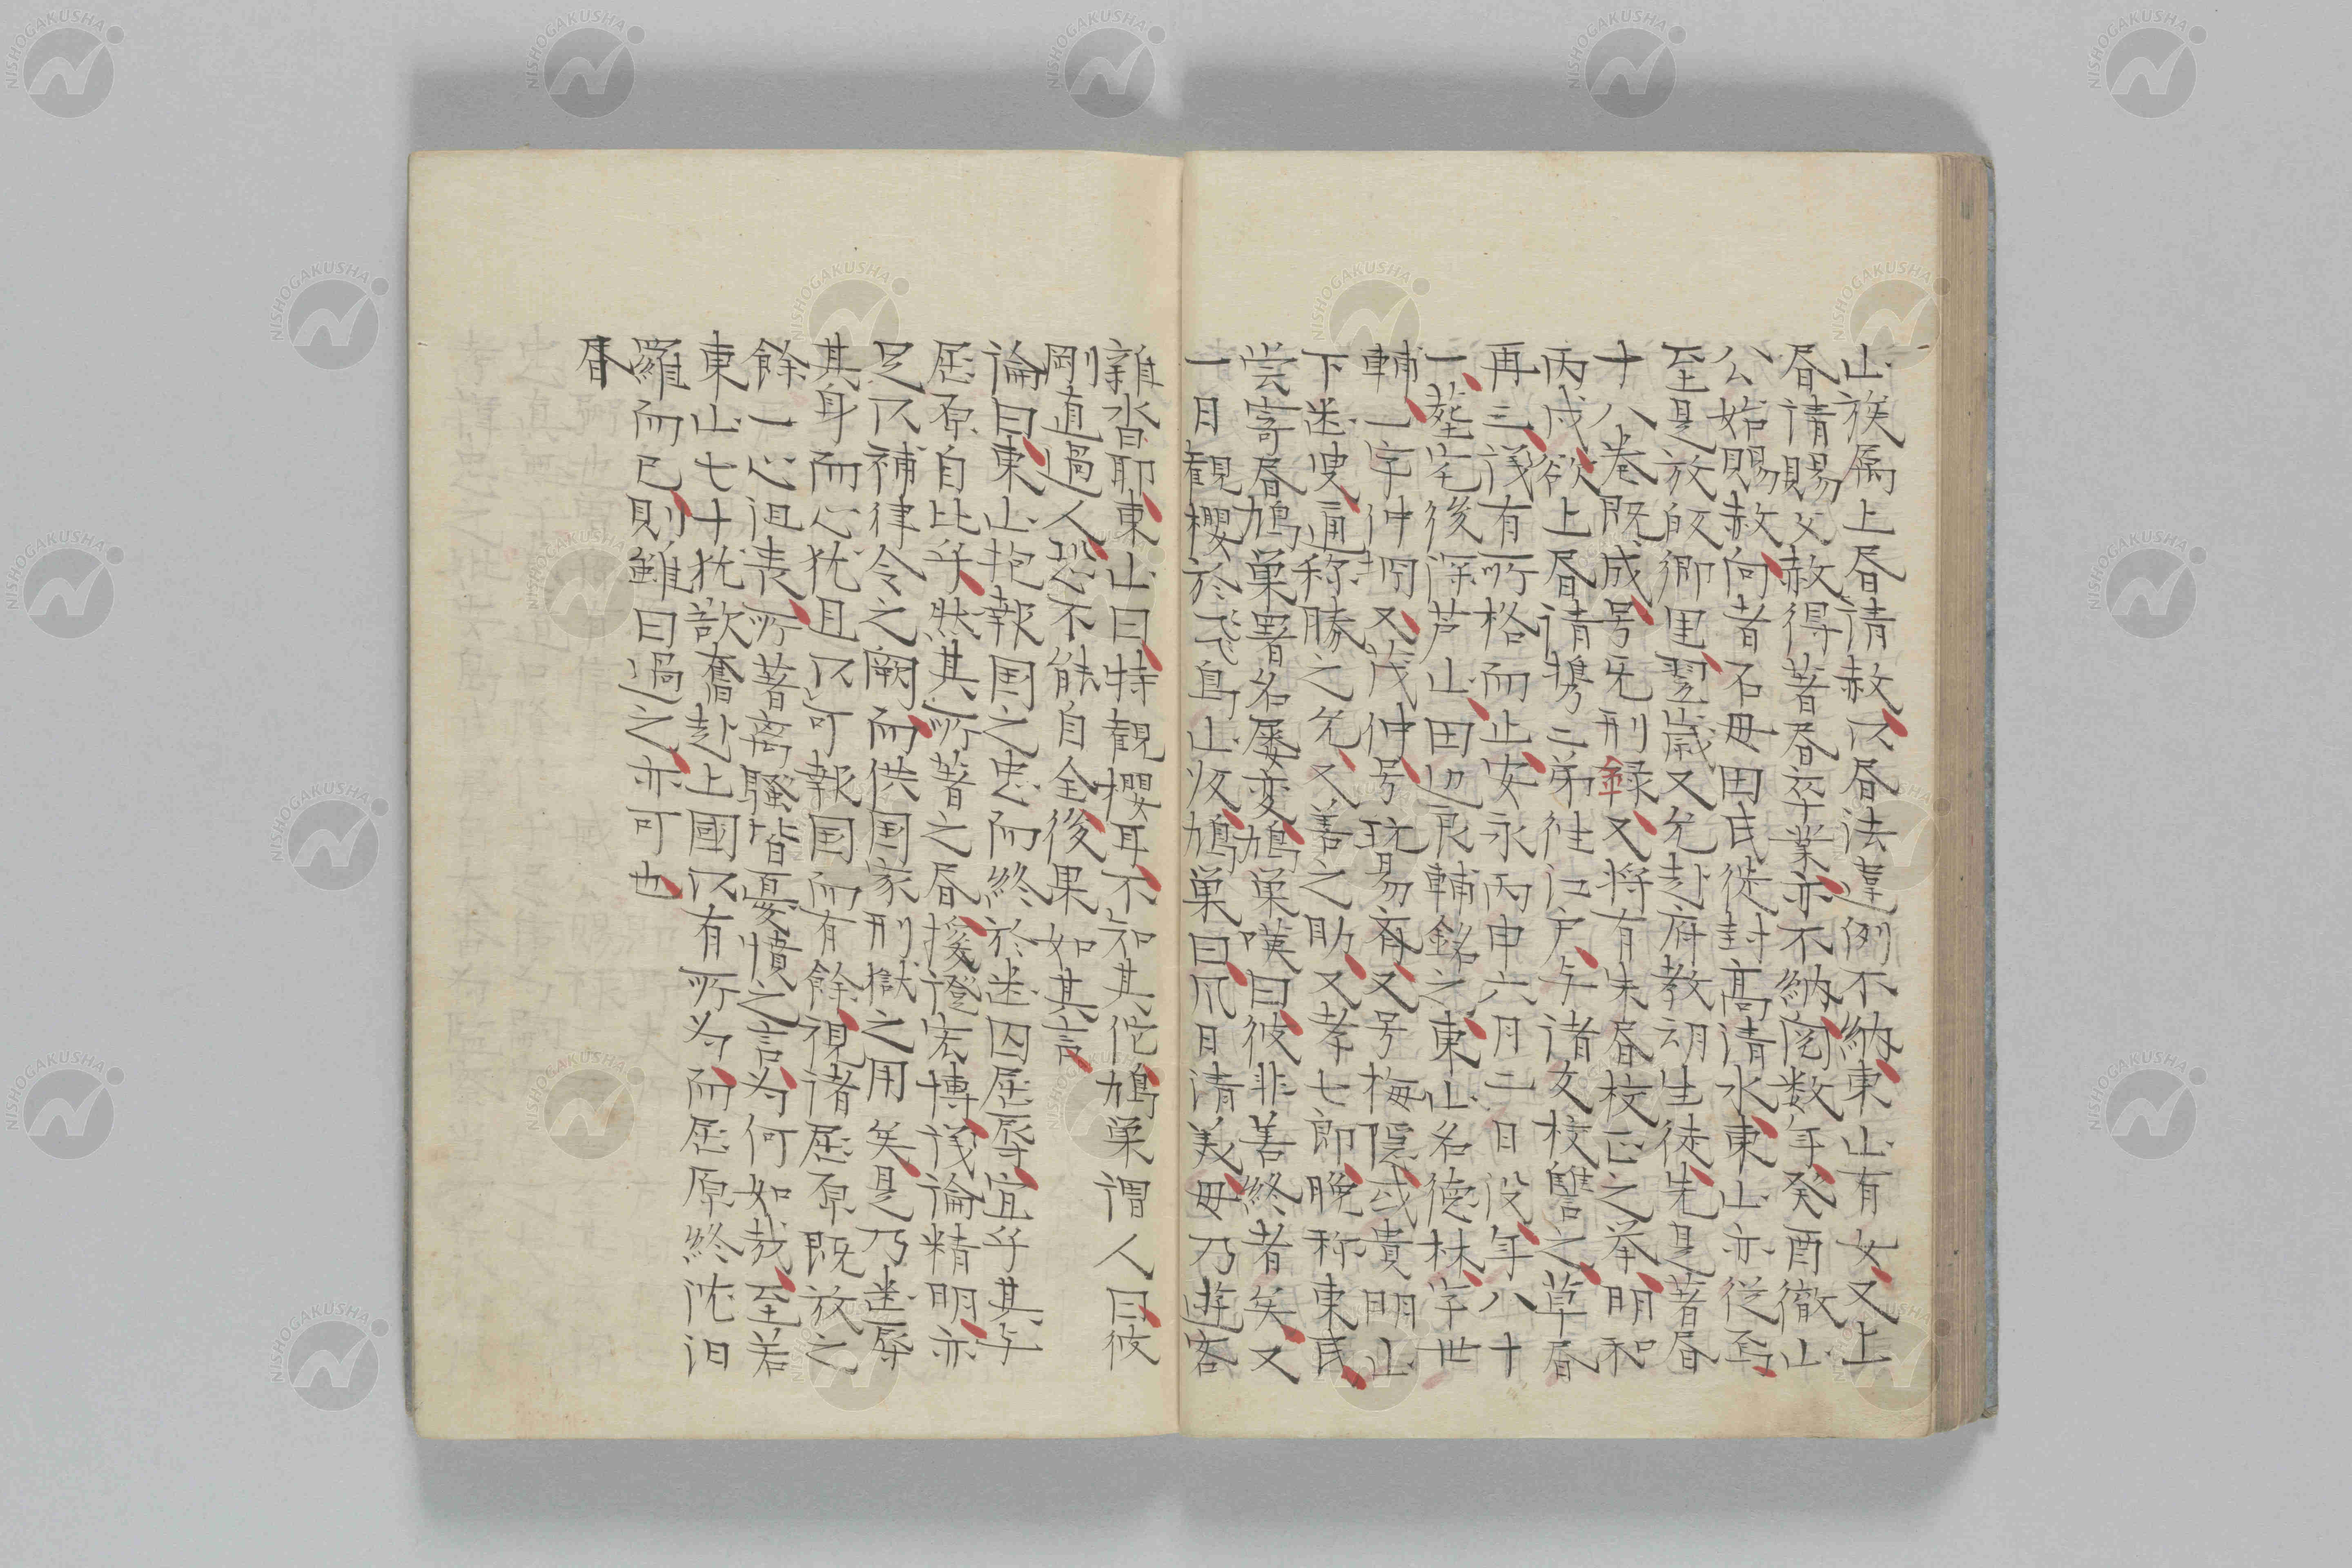 山族属上書請赦以書法違例不納東山有女又上
書請賜父赦得著書卒業亦不納閲数年癸酉徹山
公始賜赦向者石母田氏徙封高清水東山亦從焉
至是放皈郷里翌歳又允赴府教生徒先是著書
十八巻既成号无刑録又将有朱書校正之挙明和
丙戌欲上書請携二弟往江戸与諸友校讐之草書
再三議有所格而止安永丙申六月二日没年八十
一葬宅後深芦山田辺良輔銘之東山名徳林字世
輔一字仲又茂仲号玩易斎又号梅隠或貴明山
下幽叟通称勝之允又善之助又孝七郎晩称東民
尝寄書鳩巣署名屡変鳩巣嘆曰彼非善終者矣又
一日観櫻於飛鳥山皈鳩巣曰風日清美毋乃遊客
雜沓耶東山曰特観櫻耳不知其佗鳩巣謂人曰彼
剛直過人恐不能自全後果如其言
論曰東山抱報国之忠而終於幽囚屈辱宜乎其与
屈原自比乎然其所著之書援證宏博議論精明亦
足以補律令之闕而供国家刑獄之用矣是乃幽辱
其身而心猶且以可報国而有餘視諸屈原既放之
餘一心沮喪所著离騒皆憂憤之言為何如哉至若
東山七十猶欲奮赴上國以有所為而屈原終沈汨
羅而已則雖曰過之亦可也
書